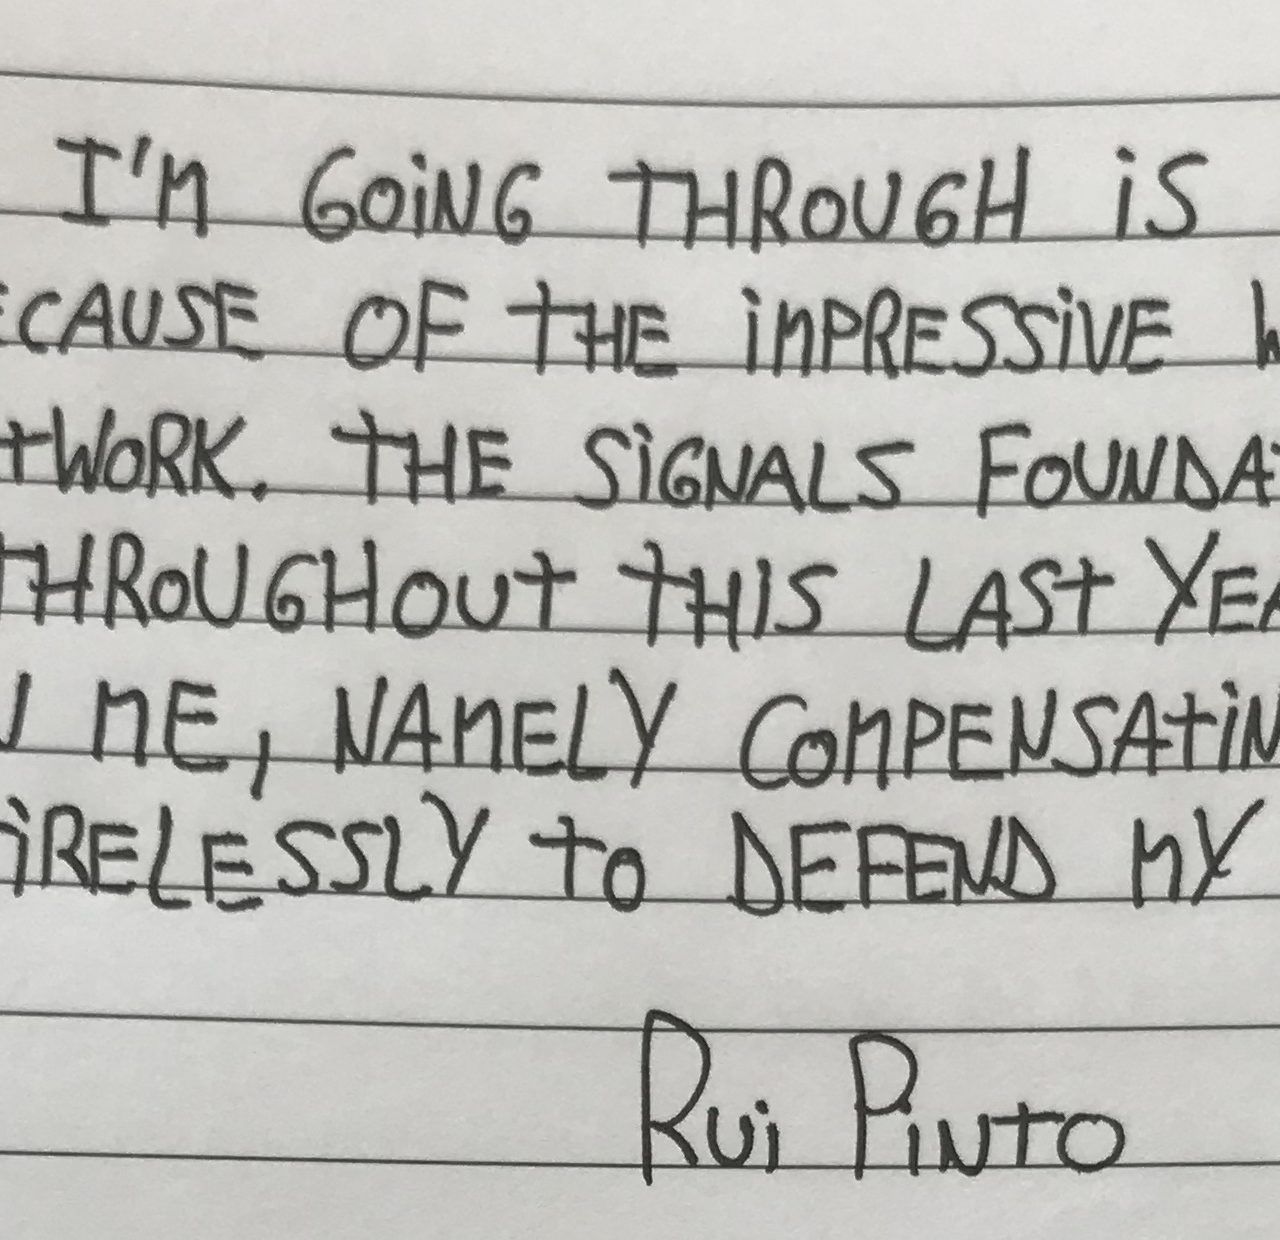 I'M GOING THROUGH IS
ECAUSE OF THE IMPRESSIVE
TWORK. THE SIGNALS FOUNDA
THROUGHOUT THIS LAST YEA
ME, NAMELY COMPENSATIN
IRELESSLY TO DEFEND MY
RUI PINTO